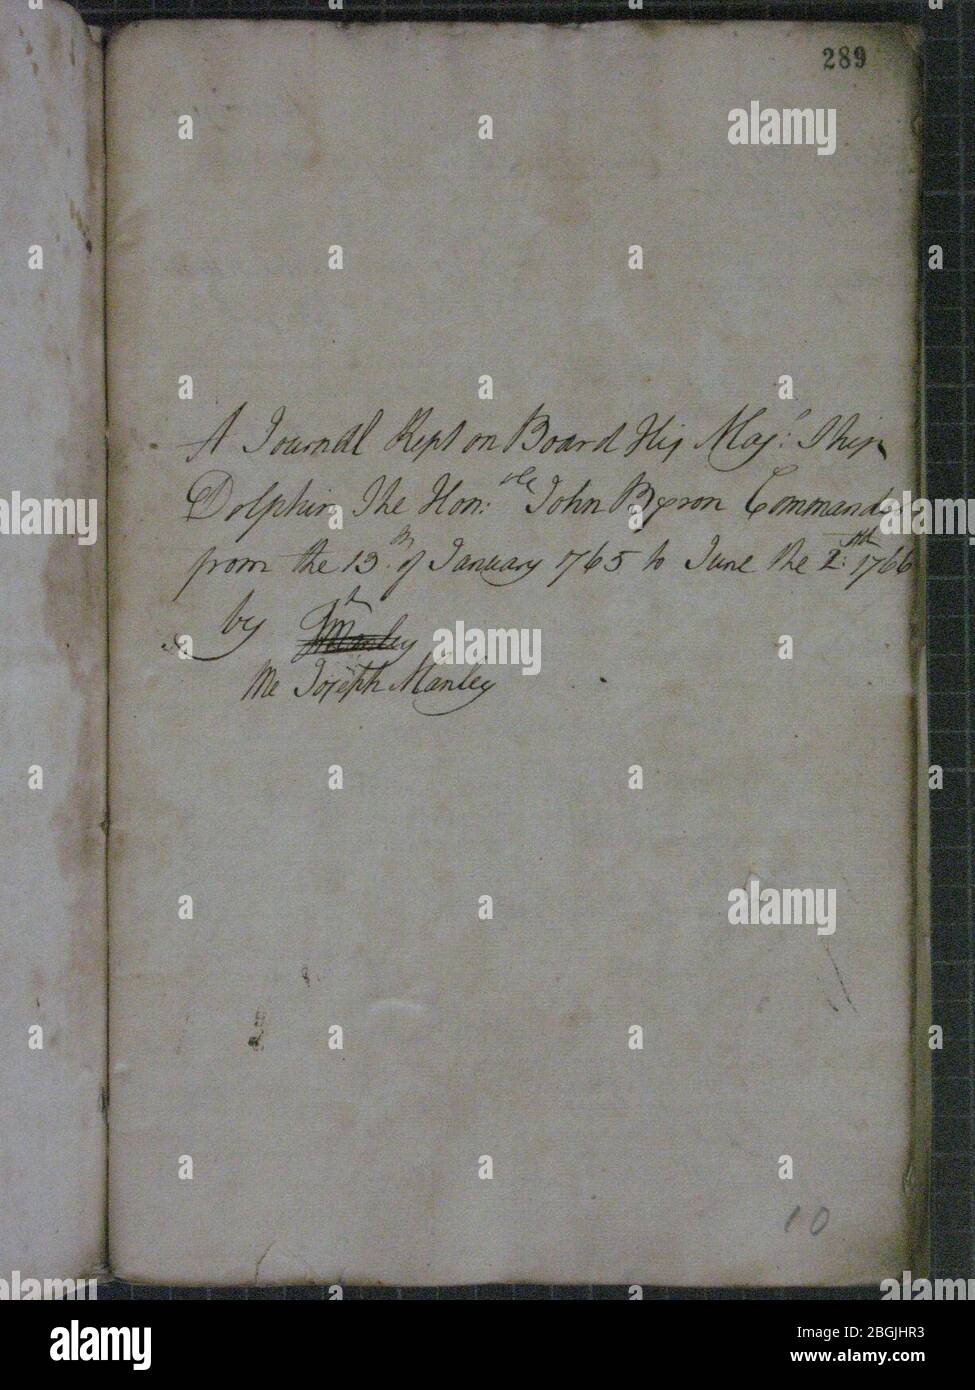 289
A Journal Kept on Board His Maj:s Ship
Dolphin, The Hon:ble John Byron Commander
from the 13th of January 1765 to June the 2:nth 1766
by
Me Joseph Manley
10
alamy
Image ID: 2BGJHR3
www.alamy.com